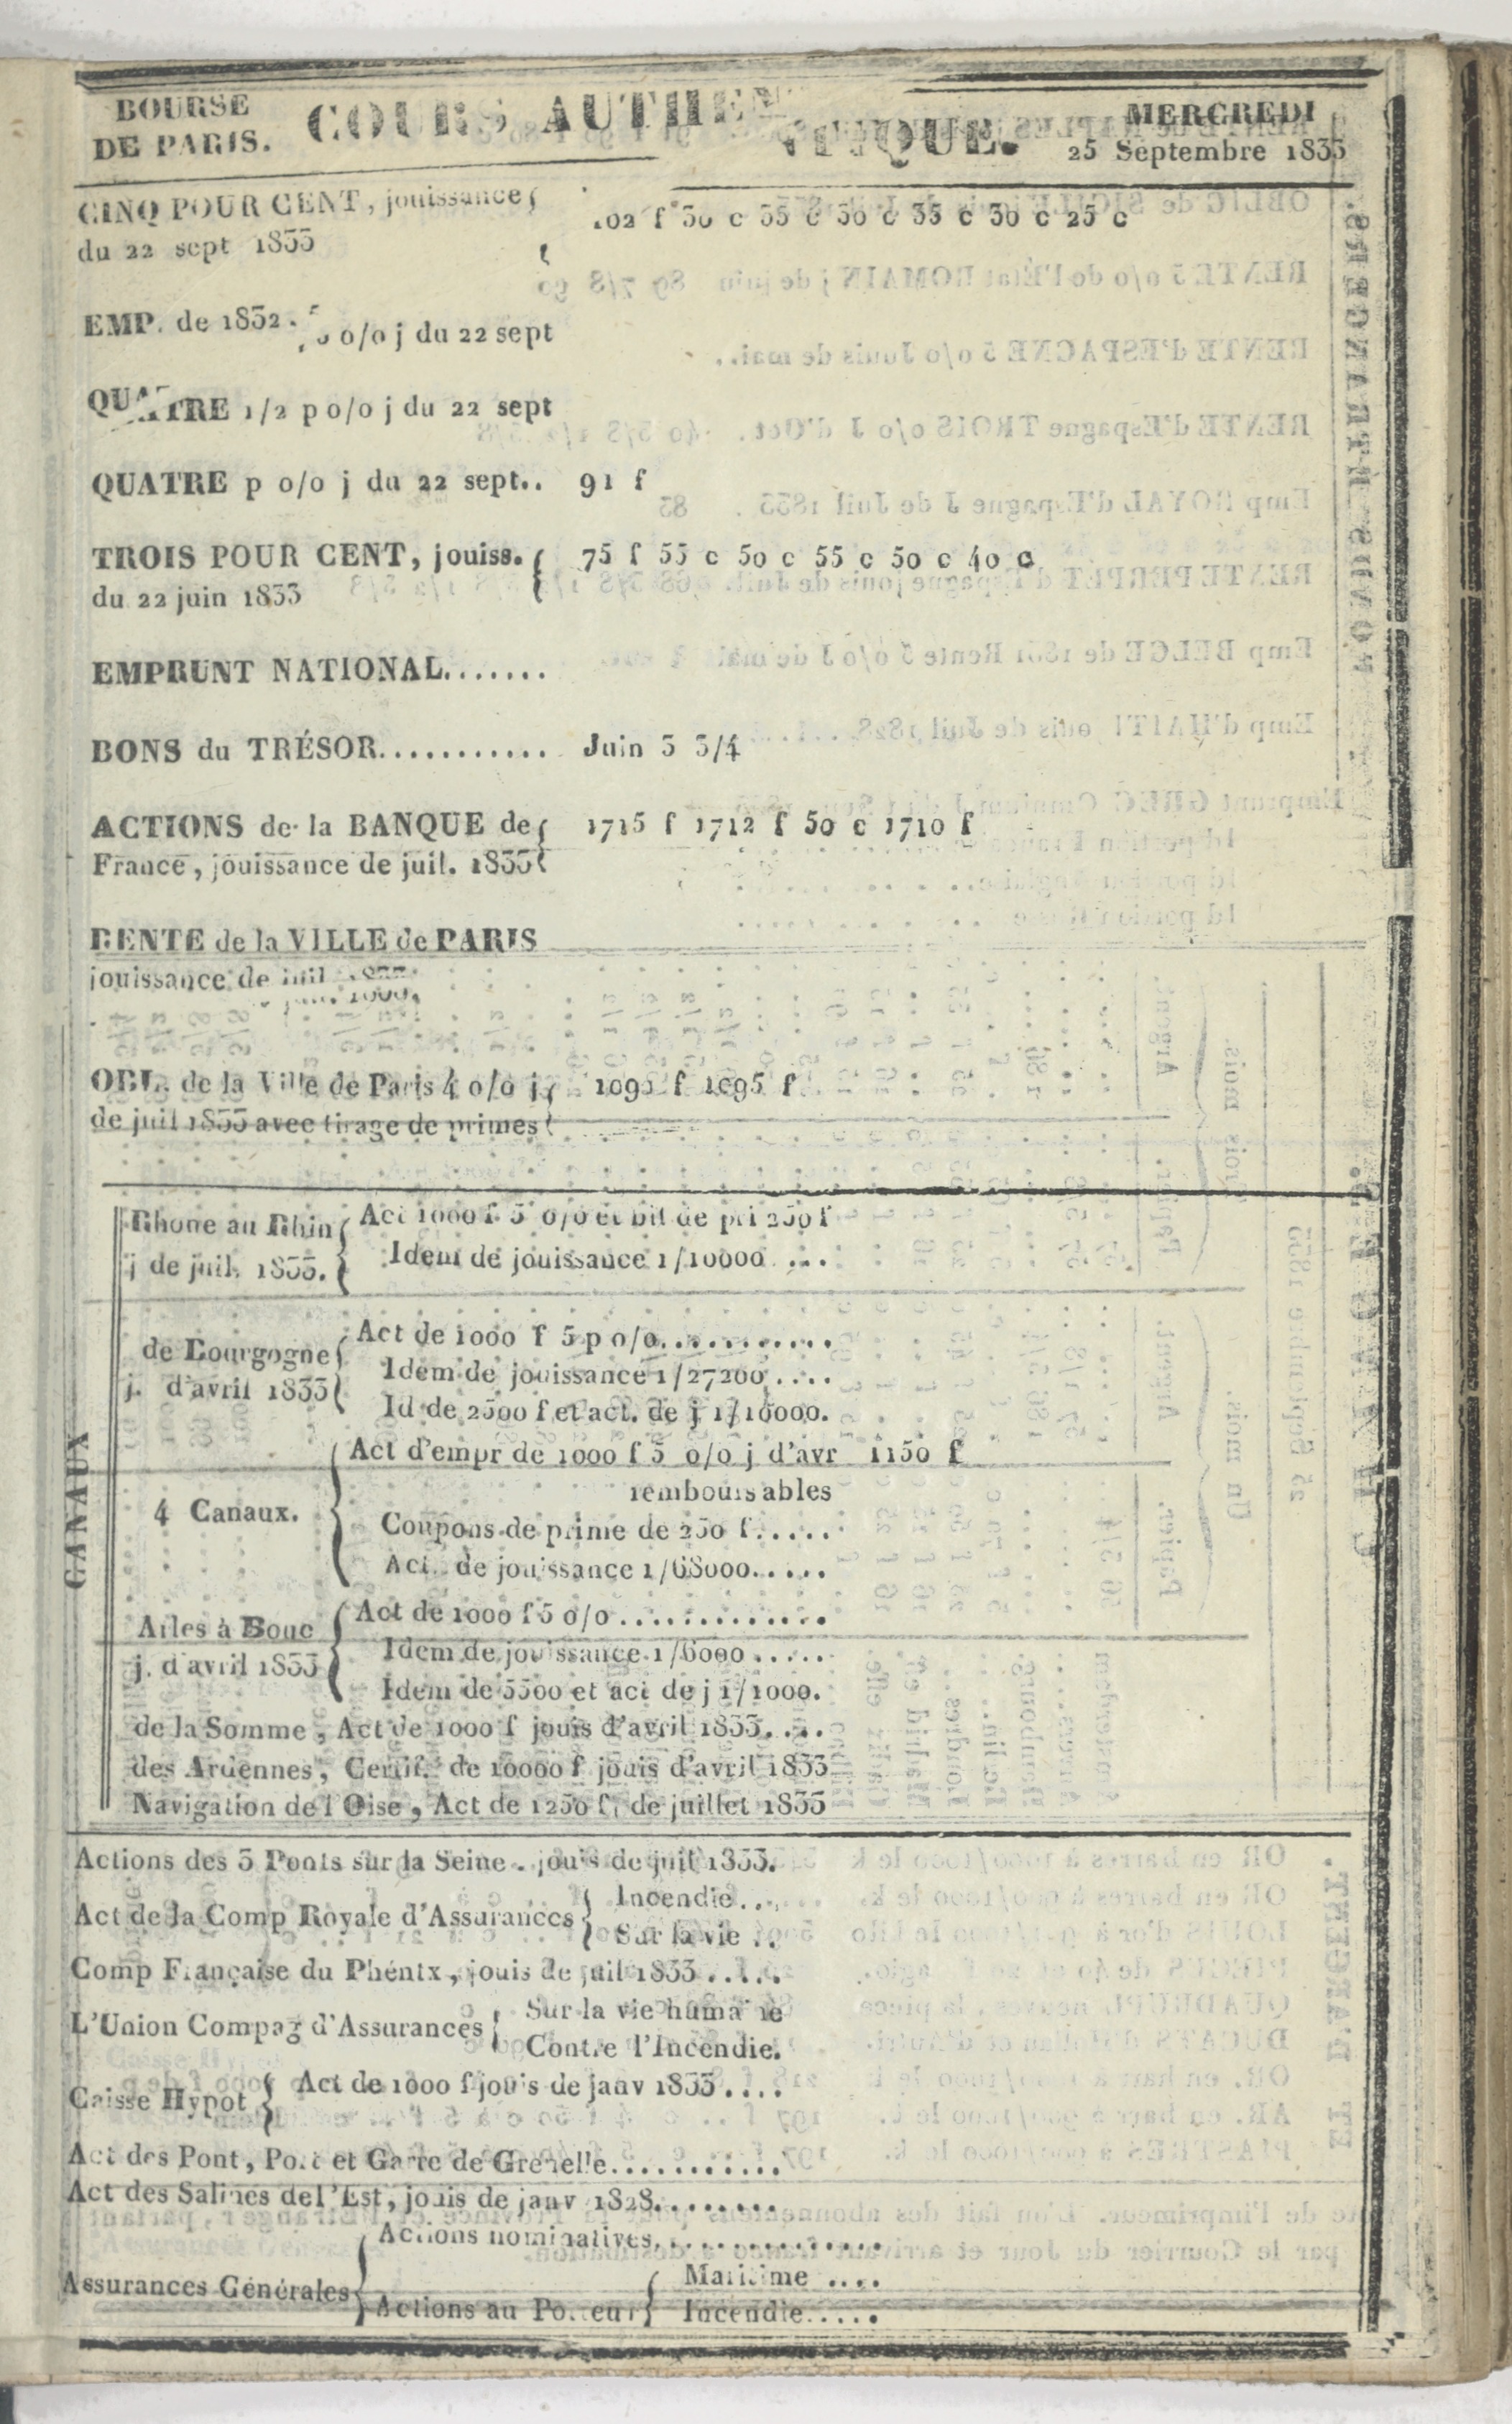 BOURSE
DE PARIS.
COURS AUTHENTIQUE.
MERCREDI
25 Septembre 1833
CINQ POUR CENT, jouissance
du 22 sept 1833
102 f 30 c 35 c 30 c 35 c 30 c 25 c
EMP. de 1832. 5 o/o j du 22 sept
QUATRE 1/2 p o/o j du 22 sept
QUATRE p o/o j du 22 sept.. 91 f
TROIS POUR CENT, jouiss. 75 f 55 c 50 c 55 c 50 c 40 c
du 22 juin 1833
EMPRUNT NATIONAL.......
BONS du TRÉSOR........... Juin 3 3/4
ACTIONS de la BANQUE de 1715 f 1712 f 50 c 1710 f
France, jouissance de juil. 1833
RENTE de la VILLE de PARIS
jouissance de juil. 1833
OBL. de la Ville de Paris 4 o/o j f 1095 f
de juil 1833 avec tirage de primes
CANAUX
Rhone au Rhin
j de juil. 1833.
Act 1000 f. 5 o/o et bil de pri 250 f
Idem de jouissance 1/10000 ...
de Bourgogne
j. d'avril 1833
Act de 1000 f 5 p o/o...........
Idem de jouissance 1/27200....
Id de 2500 f et act. de j 1/10000.
4 Canaux.
Act d'empr de 1000 f 5 o/o j d'avr 1150 f
remboursables
Coupons de prime de 250 f.....
Act. de jouissance 1/68000.....
Arles à Bouc
j. d'avril 1833
Act de 1000 f 5 o/o.............
Idem de jouissance 1/6000.....
Idem de 5500 et act de j 1/1000.
de la Somme, Act de 1000 f jouis d'avril 1833....
des Ardennes, Certif. de 10000 f jouis d'avril 1833
Navigation de l'Oise, Act de 1250 f, de juillet 1833
Actions des 3 Ponts sur la Seine.. jouis de juil 1833.
Act de la Comp Royale d'Assurances
Incendie....
Sur la vie ..
Comp Française du Phénix, jouis de juil 1833.....
L'Union Compag d'Assurances
Sur la vie humaine
Contre l'Incendie.
Caisse Hypot Act de 1000 f jouis de janv 1833....
Act des Pont, Port et Garre de Grenelle...........
Act des Salines de l'Est, jouis de janv 1828........
Assurances Générales
Actions nominatives...............
Actions au Porteur
Maritime ....
Incendie.....